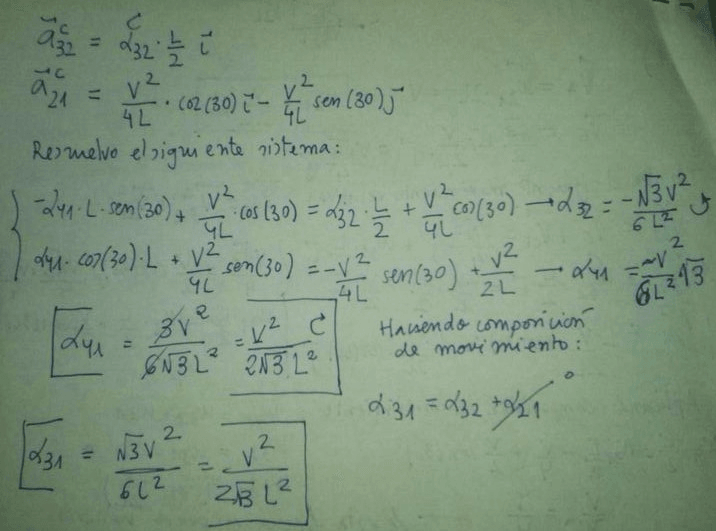 a⃗ᶜ₃₂ = α₃₂ · L/2 i⃗
a⃗ᶜ₂₁ = V²/4L · cos(30) i⃗ - V²/4L sen(30) j⃗
Resuelvo el siguiente sistema:
-α₄₁ · L · sen(30) + V²/4L · cos(30) = α₃₂ · L/2 + V²/4L cos(30) → α₃₂ = -√3V²/6L² ↺
α₄₁ · cos(30) · L + V²/4L sen(30) = -V²/4L sen(30) + V²/2L → α₄₁ = V²/6L² √3
α₄₁ = 3V²/6√3L² = V²/2√3L²
Haciendo composición
de movimiento:
α₃₁ = α₃₂ + α₂₁ 0
α₃₁ = √3V²/6L² = V²/2√3L²